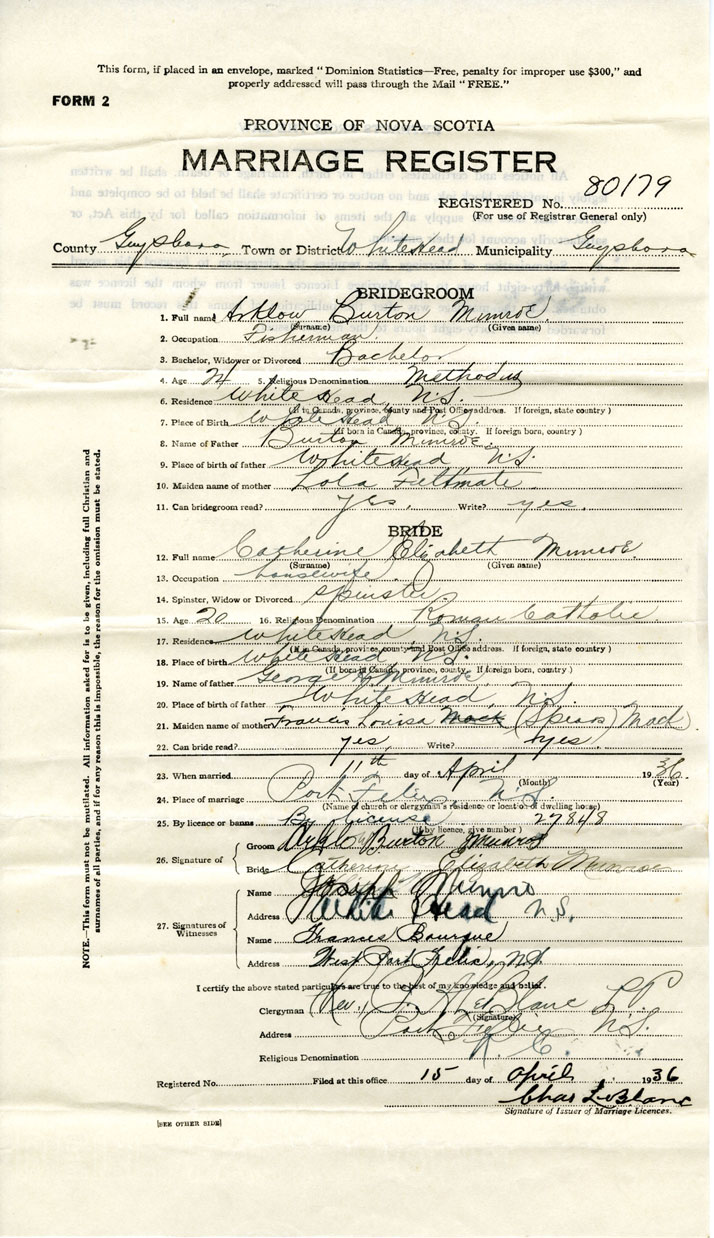 This form, if placed in an envelope, marked "Dominion Statistics—Free, penalty for improper use $300," and
properly addressed will pass through the Mail "FREE."
FORM 2
PROVINCE OF NOVA SCOTIA
MARRIAGE REGISTER
REGISTERED No. 80179
(For use of Registrar General only)
County Guysboro Town or District White Head Municipality Guysboro
BRIDEGROOM
1. Full name Arklow Burton Munroe
(Surname) (Given name)
2. Occupation Fisherman
3. Bachelor, Widower or Divorced Bachelor
4. Age 24 5. Religious Denomination Methodist
6. Residence White Head, N.S.
(If in Canada, province, county and Post Office address. If foreign, state country)
7. Place of Birth White Head N.S.
(If born in Canada, province, county. If foreign born, country)
8. Name of Father Burton Munroe
9. Place of birth of father White Head N.S.
10. Maiden name of mother Lola Feltmate
11. Can bridegroom read? yes. Write? yes.
BRIDE
12. Full name Catherine Elizabeth Munroe
(Surname) (Given name)
13. Occupation housewife
14. Spinster, Widow or Divorced Spinster
15. Age 20 16. Religious Denomination Roman Catholic
17. Residence White Head, N.S.
(If in Canada, province, county and Post Office address. If foreign, state country)
18. Place of birth White Head, N.S.
(If born in Canada, province, county. If foreign born, country)
19. Name of father George Munroe
20. Place of birth of father White Head, N.S.
21. Maiden name of mother Frances Louisa Mack (Spears) Mack
22. Can bride read? yes, Write? yes.
23. When married 11th day of April 1936
(Month) (Year)
24. Place of marriage Port Felix, N.S.
(Name of church or clergyman's residence or location of dwelling house)
25. By licence or banns By License 27848
(If by licence, give number)
26. Signature of
Groom Burton Munroe
Bride Catherine Elizabeth Munroe
27. Signatures of Witnesses
Name Joseph Munro
Address White Head N.S.
Name Francis Bourque
Address West Port Felix, N.S.
I certify the above stated particulars are true to the best of my knowledge and belief.
Clergyman (Rev.) LeBlanc P.P.
(Signature)
Address Port Felix N.S.
Religious Denomination R. C.
Registered No. Filed at this office 15 day of April 1936
Chas LeBlanc
Signature of Issuer of Marriage Licences.
[SEE OTHER SIDE]
NOTE.—This form must not be mutilated. All information asked for is to be given, including full Christian and
surnames of all parties, and if for any reason this is impossible, the reason for the omission must be stated.